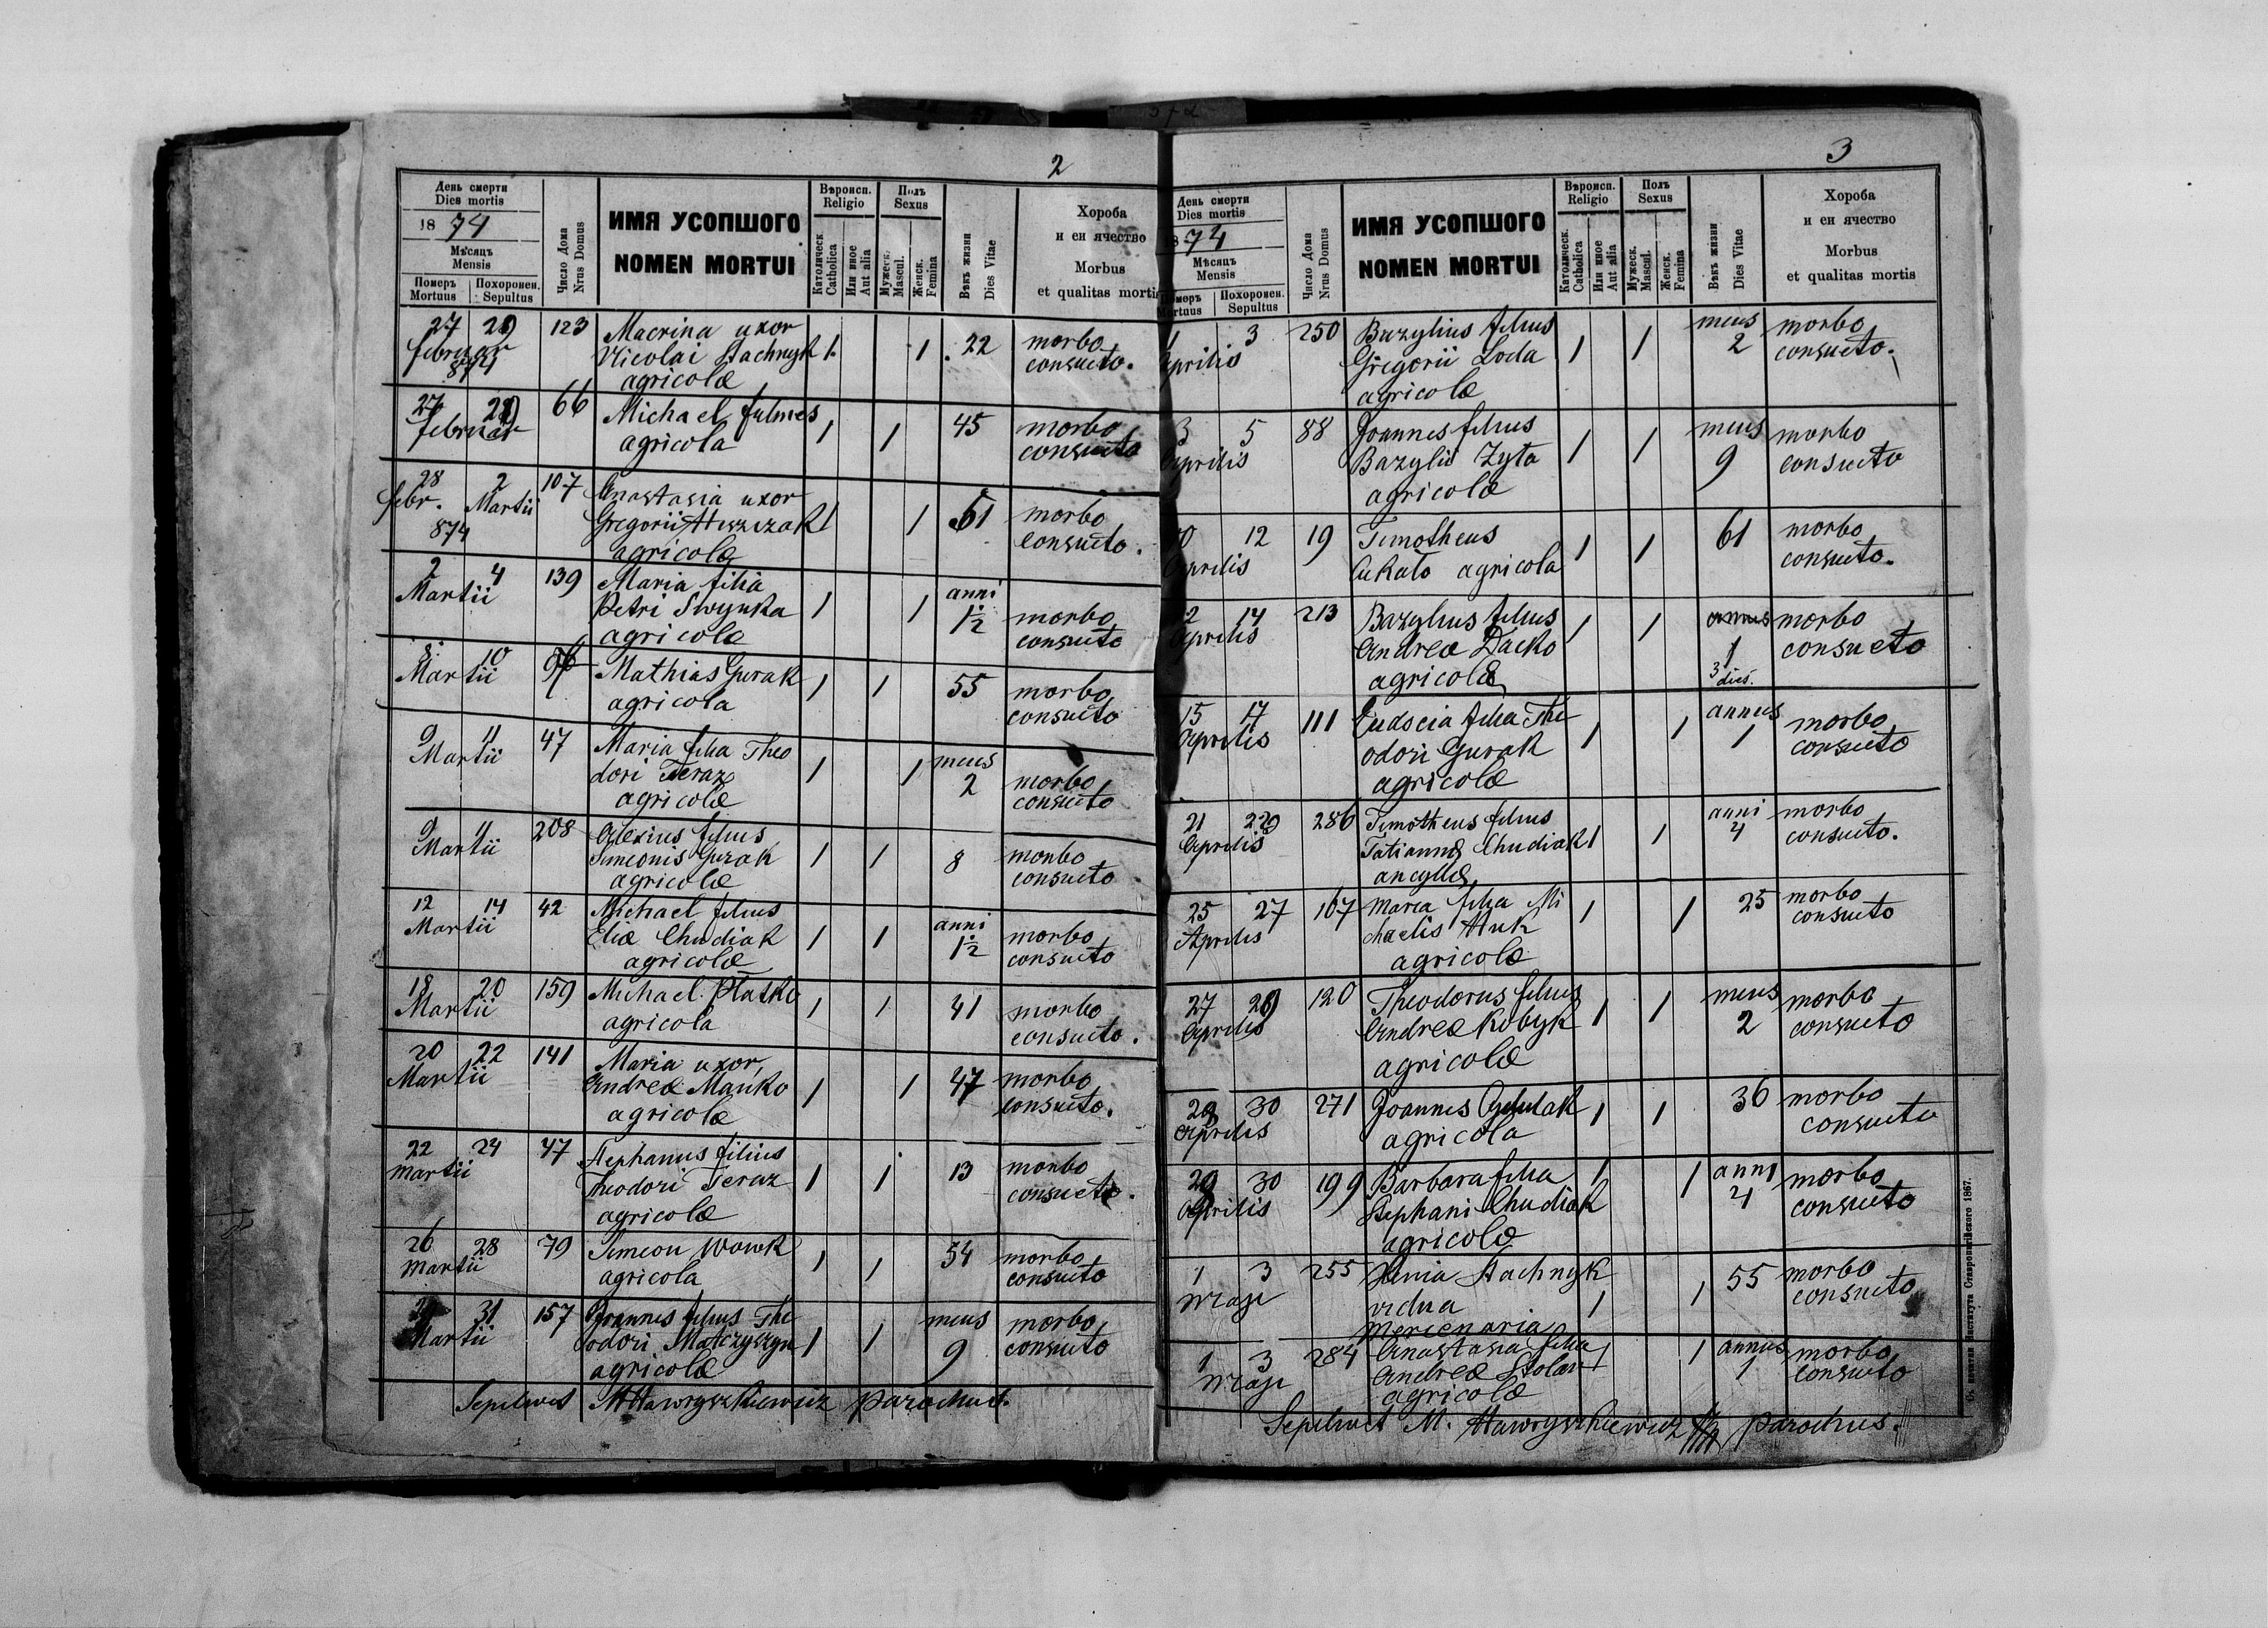 2
День смерти
Dies mortis
1874
Мѣсяцъ
Mensis
Померъ Mortuus
Похоронен. Sepultus
Число Дома
Nrus Domus
ИМЯ УСОПШОГО
NOMEN MORTUI
Вѣроисп.
Religio
Католическ.
Catholica
Или иное
Aut alia
Полъ
Sexus
Мужеск.
Mascul.
Женск.
Femina
Вѣкъ жизни
Dies Vitae
Хороба
и еи ячество
Morbus
et qualitas mortis
27 februar 874 123 Macrina uxor 1. 1 22 morbo
Nicolai Stachnyk consueto.
agricolæ
27 februar 66 Michael 1 1 45 morbo
agricola consueto
28 febr. 874 2 Martii 107 Anastasia uxor 1 1 61 morbo
Gregorii consueto.
agricolæ
2 4 Martii 139 Maria filia 1 1 anni 1½ morbo
Petri Swynka consueto
agricolæ
8 10 Martii Mathias Gurak 1 1 55 morbo
agricola consueto
9 11 Martii 47 Maria filia Theo 1 1 mens 2 morbo
dori Feraz consueto
agricolæ
9 11 Martii 208 Alexius filius 1 1 8 morbo
Simeonis Gurak consueto
agricolæ
12 14 Martii 42 Michael filius 1 1 anni 1½ morbo
Eliæ Chudiak consueto
agricolæ
18 20 Martii 159 Michael 1 1 41 morbo
agricola consueto.
20 22 Martii 141 Maria uxor 1 1 47 morbo
Andreæ Manko consueto.
agricolæ
22 24 Martii 47 Stephanus filius 1 1 13 morbo
Theodori Feraz consueto.
agricolæ
26 28 Martii 79 Simeon Wowk 1 1 54 morbo
agricola consueto
31 Martii 157 Joannes filius The 1 1 mens 9 morbo
odori Matczyszyn consueto
agricolæ
Sepelivit M Hawryszkiewicz parochus.
3
День смерти
Dies mortis
1874
Мѣсяцъ
Mensis
Померъ Mortuus
Похоронен. Sepultus
Число Дома
Nrus Domus
ИМЯ УСОПШОГО
NOMEN MORTUI
Вѣроисп.
Religio
Католическ.
Catholica
Или иное
Aut alia
Полъ
Sexus
Мужеск.
Mascul.
Женск.
Femina
Вѣкъ жизни
Dies Vitae
Хороба
и еи ячество
Morbus
et qualitas mortis
1 3 Aprilis 250 Bazylius filius 1 1 mens 2 morbo
Gregorii Loda consueto.
agricolæ
3 5 Aprilis 88 Joannes filius 1 1 mens 9 morbo
Bazylii Zyta consueto
agricolæ
10 12 Aprilis 19 Timotheus 1 1 61 morbo
agricola consueto.
12 14 Aprilis 213 Bazylius filius 1 1 annus 1 3 dies. morbo
Andreæ Dacko consueto
agricolæ
15 17 Aprilis 111 Eudocia filia The 1 1 annus 1 morbo
odori Gurak consueto
agricolæ
21 Aprilis 286 Timotheus filius 1 1 anni 4 morbo
Tatiannæ Chudiak consueto.
ancyllæ
25 27 Aprilis 167 Maria filia Mi 1 1 25 morbo
chaelis Huk consueto
agricolæ
27 Aprilis 120 Theodorus filius 1 1 mens 2 morbo
Andreæ Kobyk consueto
agricolæ
30 Aprilis 271 Joannes 1 1 36 morbo
agricola consueto
30 Aprilis 199 Barbara filia 1 1 anni 4 morbo
Stephani Chudiak consueto
agricolæ
1 3 Maji 255 Stachnyk 1 1 55 morbo
vidua consueto
mercenaria
1 3 Maji 284 Anastasia filia 1 1 annus 1 morbo
Andreæ Stolar consueto
agricolæ
Sepelivit M. Hawryszkiewicz parochus.